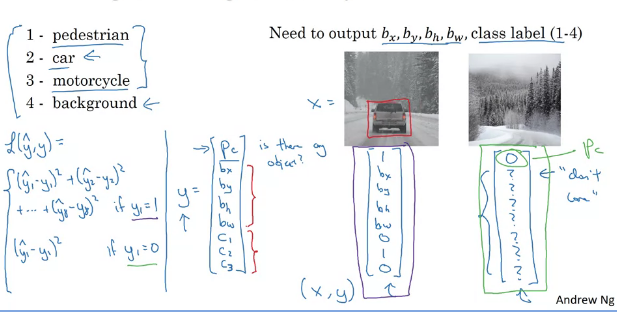 1 - pedestrian
2 - car ←
3 - motorcycle
4 - background ←
Need to output bx, by, bh, bw, class label (1-4)
x =
L(ŷ,y) =
(ŷ1-y1)² + (ŷ2-y2)²
+ ... + (ŷ8-y8)² if y1=1
(ŷ1-y1)² if y1=0
y =
→ Pc
bx
by
bh
bw
c1
c2
c3
is there any
object?
1
bx
by
bh
bw
0
1
0
(x, y)
0
?
?
?
?
?
?
?
Pc
← "don't
care"
Andrew Ng